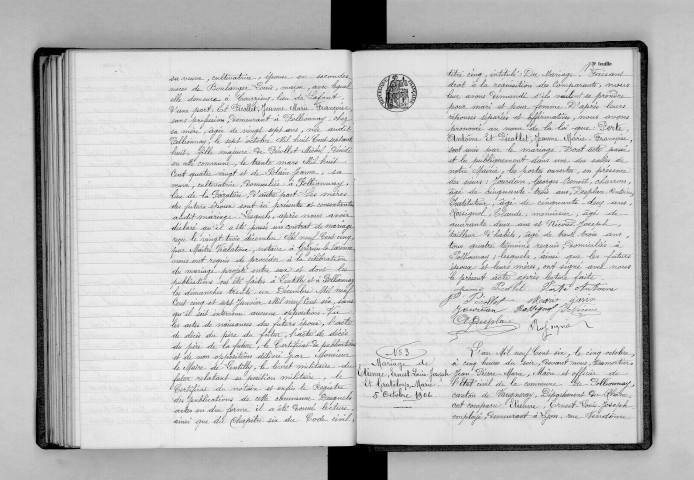 sa veuve, cultivatrice, épouse en secondes
noces de Boulanger Louis, maçon, avec lequel
elle demeure à Courzieu, lieu de Lafont.
D'une part. Et Piollet, Jeanne Marie Françoise
sans profession, demeurant à Pollionnay chez
sa mère, âgée de vingt sept ans, née audit
Pollionnay, le sept octobre Mil huit cent septante
huit. Fille majeure de Piollet Michel, décédé
en cette commune, le trente mars Mil huit
cent quatre vingt et de Jeanne, sa
veuve, cultivatrice domiciliée à Pollionnay,
lieu de la D'autre part. Les mères
des futurs époux sont ici présentes et consentantes
audit mariage. Lesquels, après nous avoir
déclaré qu'il a été passé un contrat de mariage
reçu le vingt trois décembre Mil neuf cent cinq,
par Maître notaire à
nous ont requis de procéder à la célébration
du mariage projeté entre eux et dont les
publications ont été faites à Gentilly et à Pollionnay
les dimanches trente un Décembre Mil neuf
cent cinq et sept Janvier Mil neuf cent six, sans
qu'il soit intervenu aucune opposition. Vu
les actes de naissances des futurs époux, l'acte
de décès du père du futur, l'acte de décès
du père de la future, le Certificat de publications
et de non opposition délivré par Monsieur
le Maire de Gentilly, le livret militaire du
futur relatant sa position militaire, le
Certificat du notaire et enfin le Registre
des publications de cette commune. Desquels
actes en due forme il a été donné lecture,
ainsi que du Chapitre six du Code civil,
feuille
titre cinq, intitulé : Du Mariage. Faisant
droit à la réquisition des Comparants, nous
leur avons demandé s'ils veulent se prendre
pour mari et pour femme. D'après leurs
réponses séparées et affirmatives, nous avons
prononcé au nom de la loi que Porte
Antoine et Piollet, Jeanne Marie Françoise,
sont unis par le mariage. Dont acte passé
et lu publiquement dans une des salles de
notre Mairie, les portes ouvertes, en présence
des sieurs : Jourdan, Georges Benoît, charron,
âgé de cinquante trois ans, Desplace Antoine,
Instituteur, âgé de cinquante-cinq ans,
Rossignol, Claude, menuisier, âgé de
quarante deux ans et Joseph,
tailleur d'habits, âgé de trente trois ans,
tous quatre témoins requis, domiciliés à
Pollionnay ; lesquels, ainsi que les futurs
époux et leurs mères, ont signé avec nous
le présent acte après lecture faite
Piollet Porte Antoine
Piollet
Jourdan Rossignol
Desplace
N° 3
Mariage de
Ernest Louis Joseph
et Marie
5 Octobre 1906
L'an Mil neuf cent six, le cinq octobre,
à cinq heures du soir, devant nous,
Jean Pierre Marie, Maire et officier de
l'État civil de la commune de Pollionnay,
canton de Vaugneray, Département du Rhône,
est comparu Ernest Louis Joseph
employé, demeurant à Lyon, rue Vendôme